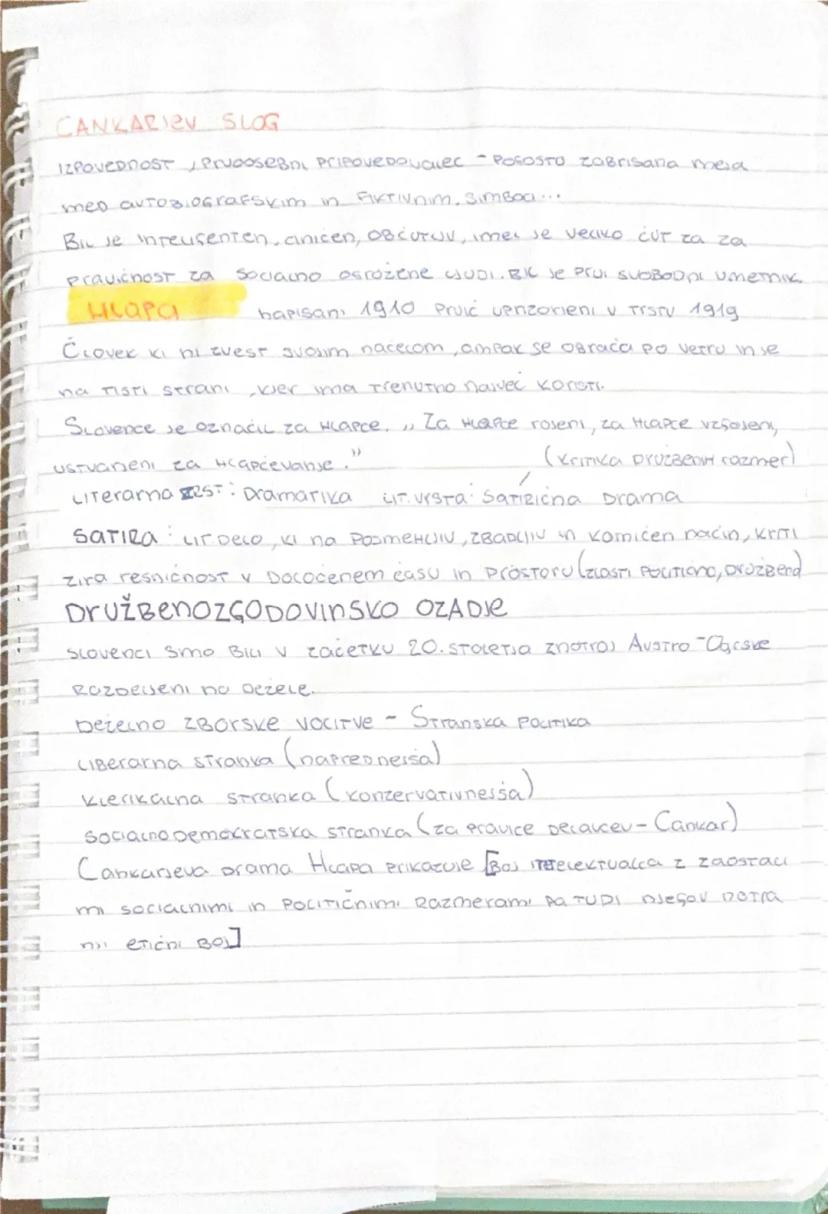 CANKARJEV SLOG
IZPOVEDNOST, PRVOOSEBNI PRIPOVEDOVALEC - POGOSTO ZABRISANA MEJA
MED AVTOBIOGRAFSKIM IN FIKTIVNIM. SIMBOLI...
BIL JE INTELIGENTEN, CINIČEN, OBČUTLJIV, IMEL JE VELIKO ČUT ZA ZA
PRAVIČNOST ZA SOCIALNO OGROŽENE LJUDI. BIL JE PRVI SVOBODNI UMETNIK.
HLAPCI NAPISANI 1910 PRVIČ UPRIZORJENI V TRSTU 1919
ČLOVEK KI NI ZVEST SVOJIM NAČELOM, AMPAK SE OBRAČA PO VETRU IN JE
NA TISTI STRANI, KJER IMA TRENUTNO NAJVEČ KORISTI.
SLOVENCE JE OZNAČIL ZA HLAPCE. „ZA HLAPCE ROJENI, ZA HLAPCE VZGOJENI,
USTVARJENI ZA HLAPČEVANJE." (KRITIKA DRUŽBENIH RAZMER)
LITERARNA ZVRST: DRAMATIKA LIT. VRSTA: SATIRIČNA DRAMA
SATIRA: LIT DELO, KI NA POSMEHLJIV, ZBADLJIV IN KOMIČEN NAČIN, KRITI
ZIRA RESNIČNOST V DOLOČENEM ČASU IN PROSTORU (ZLASTI POLITIČNO, DRUŽBENO)
DRUŽBENOZGODOVINSKO OZADJE
SLOVENCI SMO BILI V ZAČETKU 20. STOLETJA ZNOTRAJ AVSTRO-OGRSKE
RAZDELJENI NA DEŽELE.
DEŽELNO ZBORSKE VOLITVE - STRANSKA POLITIKA
LIBERALNA STRANKA (NAPREDNEJŠA)
KLERIKALNA STRANKA (KONZERVATIVNEJŠA)
SOCIALNO DEMOKRATSKA STRANKA (ZA PRAVICE DELAVCEV - CANKAR)
CANKARJEVA DRAMA HLAPCI PRIKAZUJE [BOJ INTELEKTUALCA Z ZAOSTALI
MI SOCIALNIMI IN POLITIČNIMI RAZMERAMI PA TUDI NJEGOV NOTRA
NJI ETIČNI BOJ]